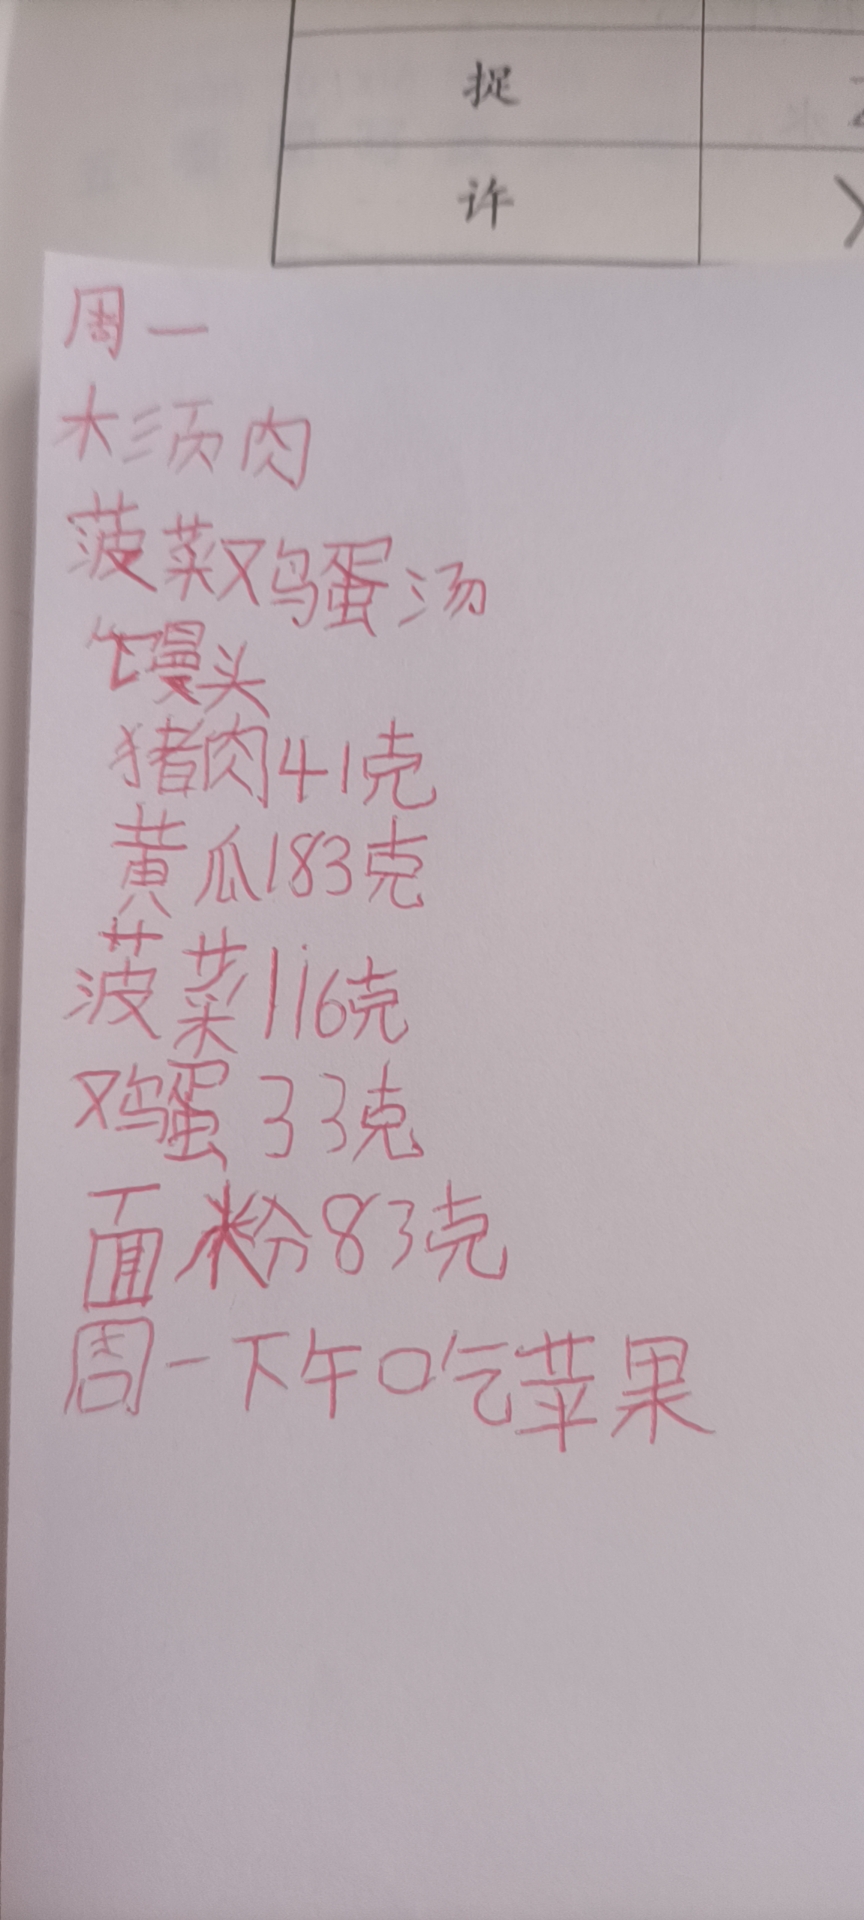 捉
许
周一
木须肉
菠菜鸡蛋汤
馒头
猪肉41克
黄瓜183克
菠菜116克
鸡蛋33克
面粉83克
周一下午吃苹果